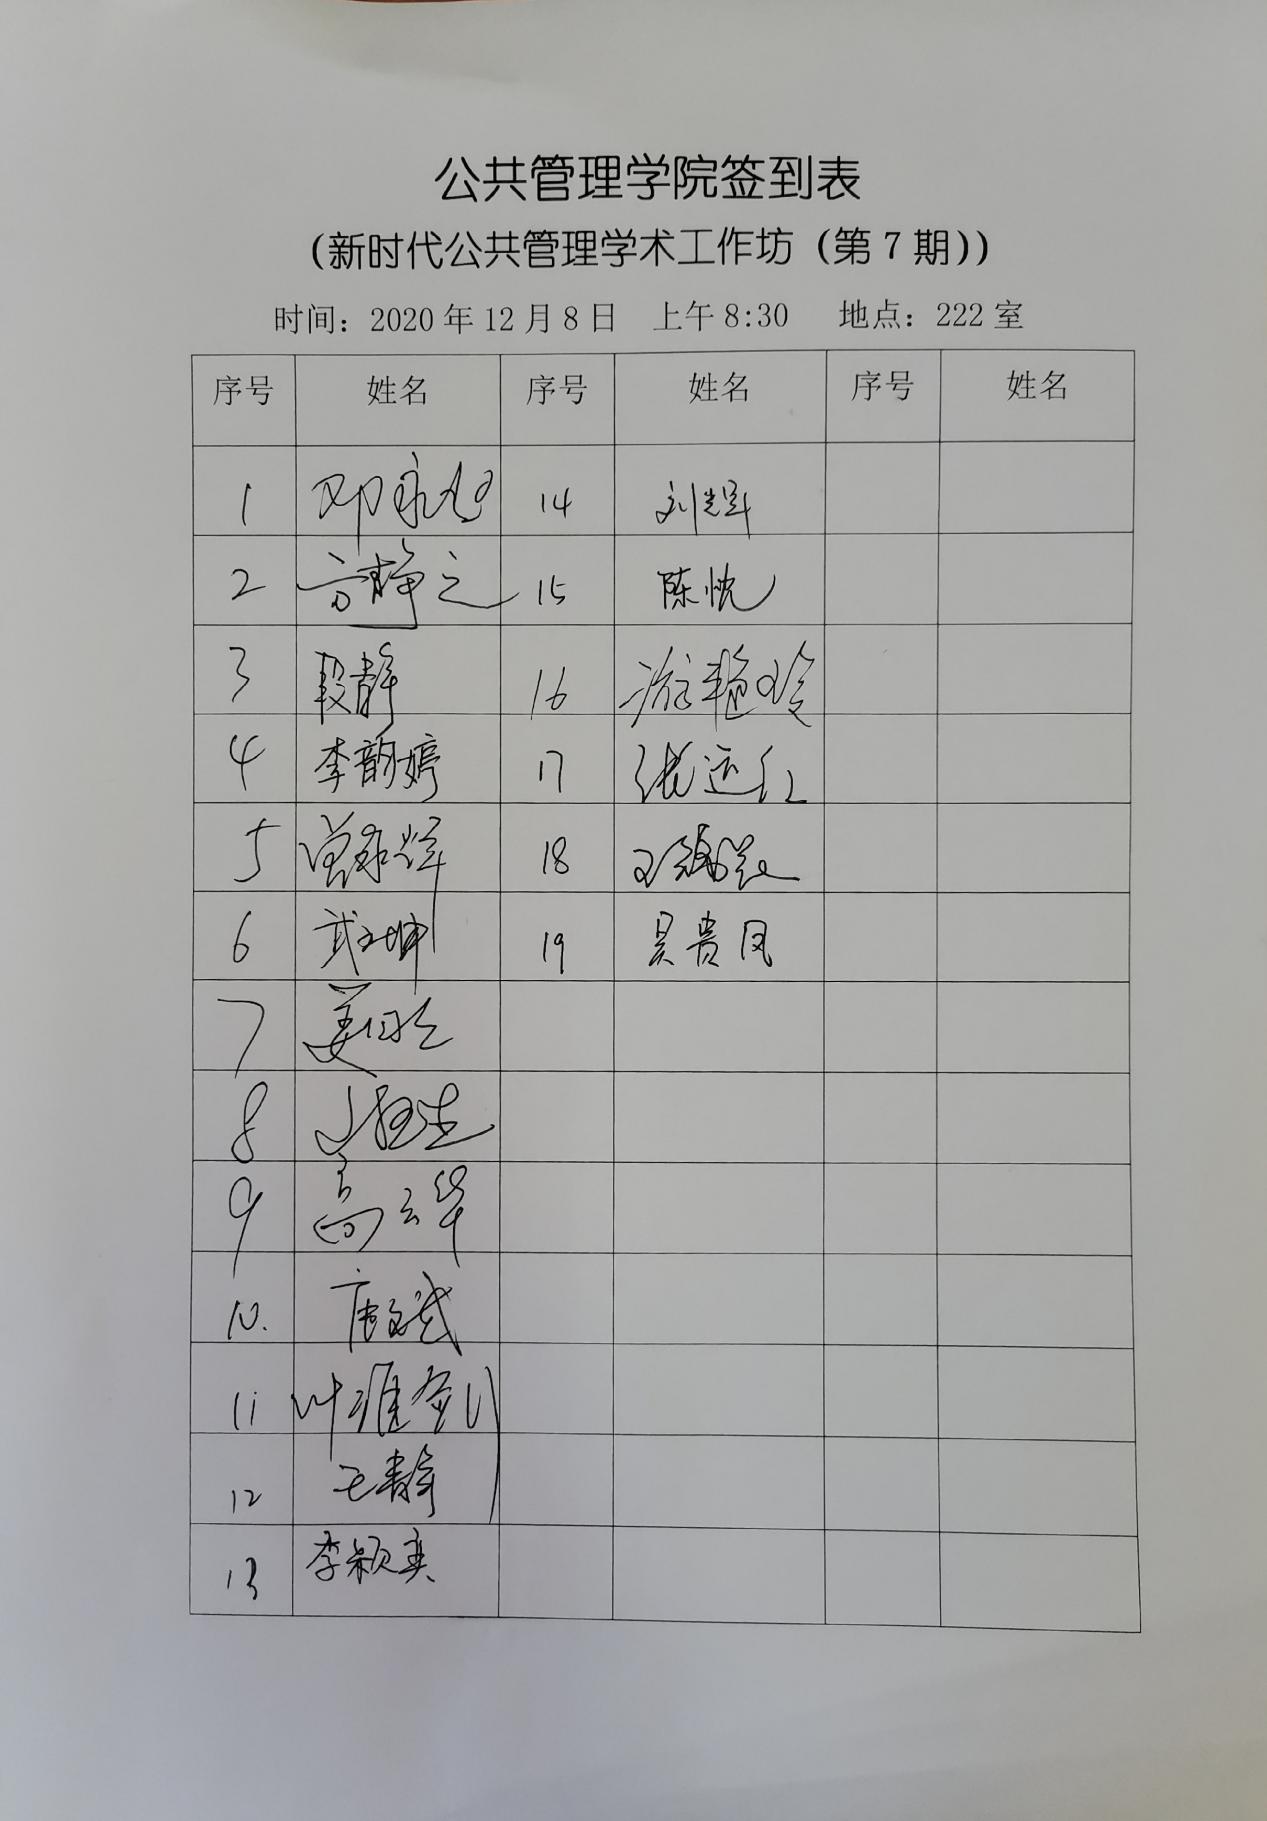 公共管理学院签到表
（新时代公共管理学术工作坊（第7期））
时间：2020年12月8日 上午8:30 地点：222室
序号 姓名 序号 姓名 序号 姓名
1 14 刘光军
2 方静之 15 陈忱
3 段静 16 游艳玲
4 李韵婷 17 张运红
5 曾永辉 18
6 19 吴贵凤
7
8
9 高云华
10. 唐文斌
11 叶准
12 王静
13 李颖奕